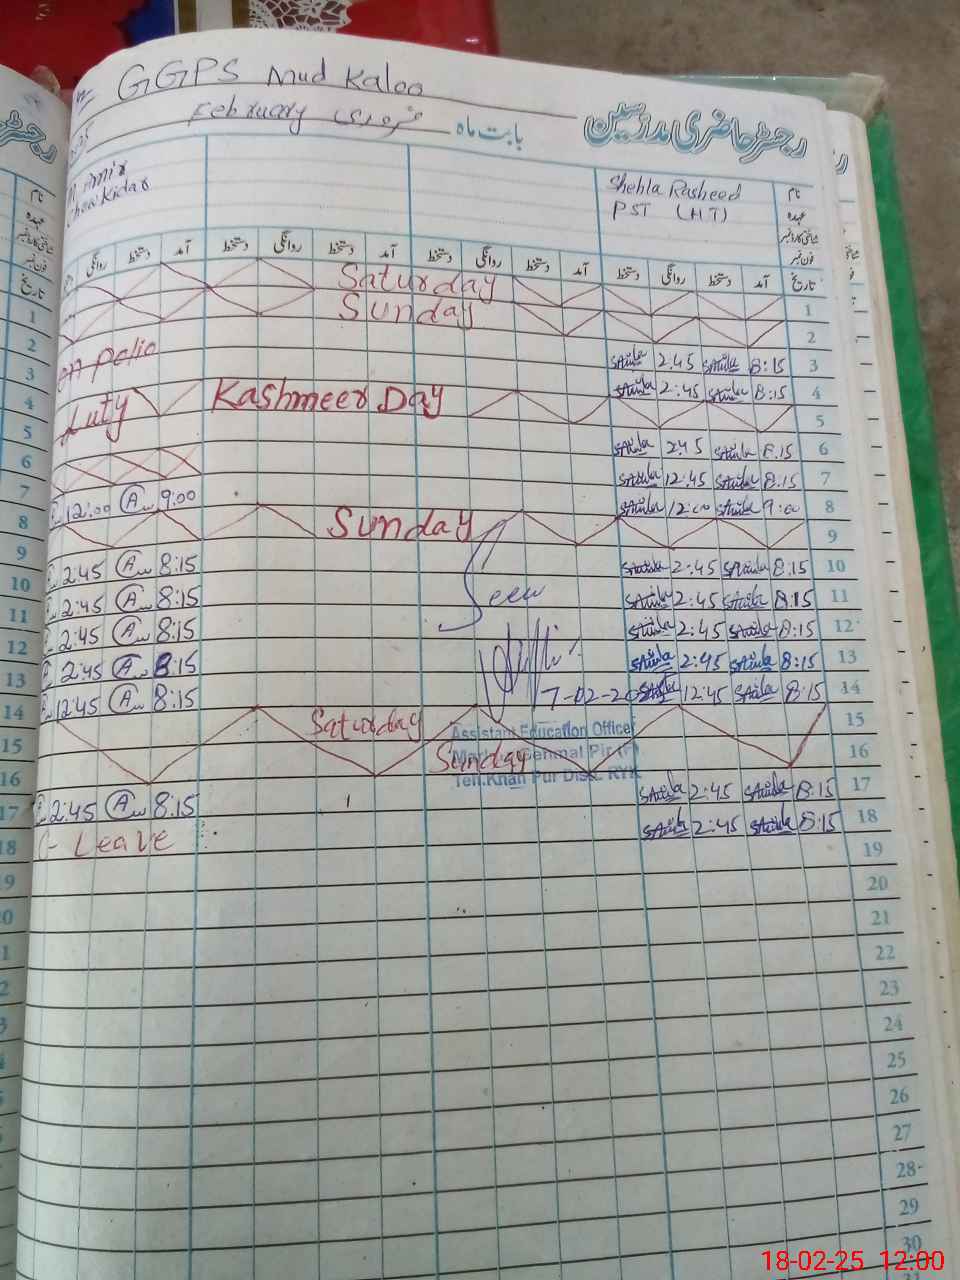 GGPS Mud Kaloo
رجسٹر حاضری مدرسین
بابت ماہ فروری February
نام Shehla Rasheed
عہدہ PST (HT)
شناختی کارڈ نمبر
فون نمبر
Chowkidar
تاریخ آمد دستخط روانگی دستخط آمد دستخط روانگی دستخط آمد دستخط روانگی دستخط آمد دستخط روانگی
Saturday 1
Sunday 2
on polio 2:45 8:15 3
2:45 8:15 4
Duty Kashmeer Day 5
2:45 8:15 6
12:45 8:15 7
12:00 9:00 12:00 9:00 8
Sunday 9
2:45 8:15 2:45 8:15 10
2:45 8:15 2:45 8:15 11
Seen
2:45 8:15 2:45 8:15 12
2:45 8:15 2:45 8:15 13
12:45 8:15 7-02-2025 12:45 8:15 14
Saturday 15
Assistant Education Officer
Sunday 16
Teh. Khan Pur Distt. RYK
2:45 8:15 2:45 8:15 17
C- Leave 2:45 8:15 18
19
20
21
22
23
24
25
26
27
28
29
30
18-02-25 12:00